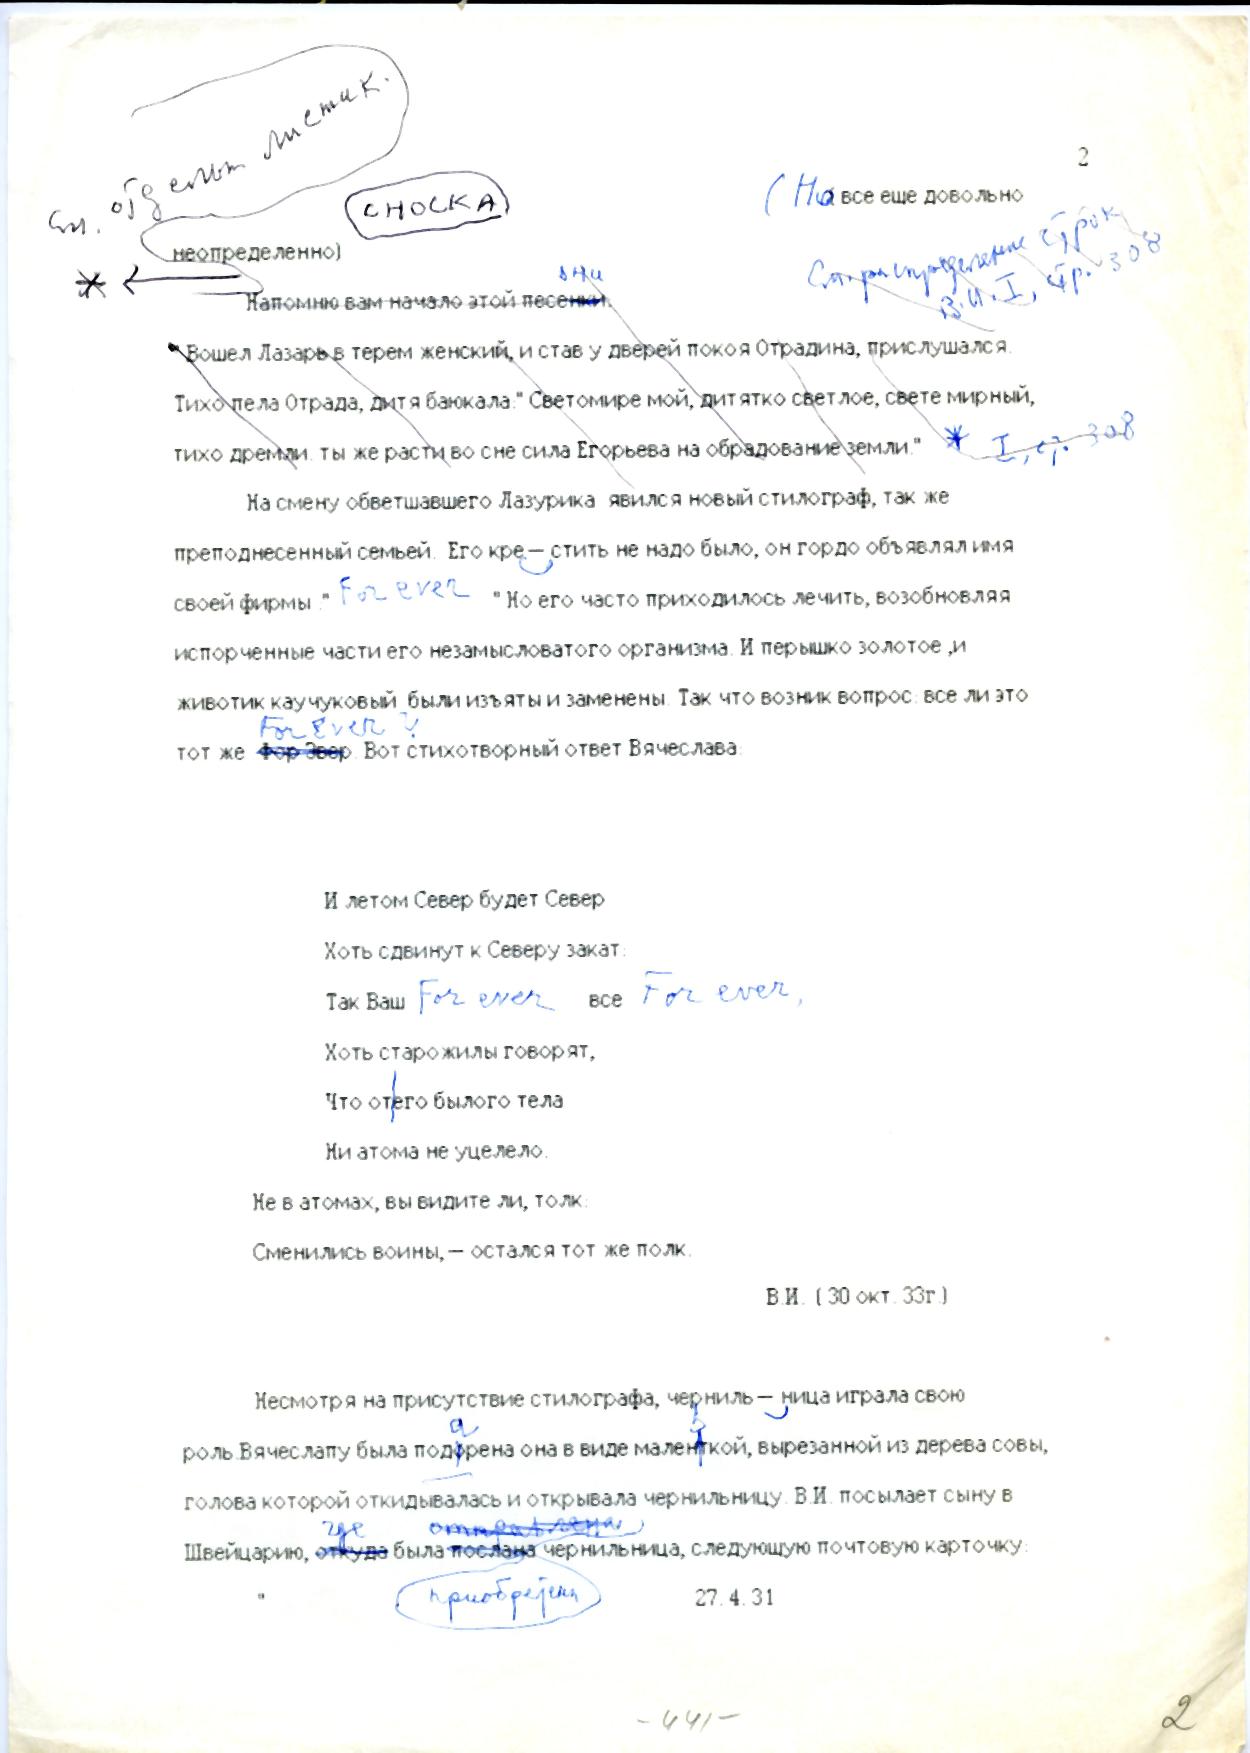 См. отдельн листик.
2
СНОСКА
(На все еще довольно
неопределенно)
строк
В.И. I, стр. 308
Напомню вам начало этой песенки.
"Вошел Лазарь в терем женский, и став у дверей покоя Отрадина, прислушался.
Тихо пела Отрада, дитя баюкала." Светомире мой, дитятко светлое, свете мирный,
тихо дремли. ты же расти во сне сила Егорьева на обрадование земли." * I, ст. 308
На смену обветшавшего Лазурика явился новый стилограф, так же
преподнесенный семьей. Его кре— стить не надо было, он гордо объявлял имя
своей фирмы ." For ever " Но его часто приходилось лечить, возобновляя
испорченные части его незамысловатого организма. И перышко золотое ,и
животик каучуковый были изъяты и заменены. Так что возник вопрос: все ли это
For Ever ?
тот же Фор Эвер. Вот стихотворный ответ Вячеслава:
И летом Север будет Север
Хоть сдвинут к Северу закат:
Так Ваш For ever все For ever,
Хоть старожилы говорят,
Что отего былого тела
Ни атома не уцелело.
Не в атомах, вы видите ли, толк:
Сменились воины,— остался тот же полк.
В.И. ( 30 окт. 33г.)
Несмотря на присутствие стилографа, черниль— ница играла свою
роль.Вячеслапу была подарена она в виде маленькой, вырезанной из дерева совы,
голова которой откидывалась и открывала чернильницу. В.И. посылает сыну в
где отправлена
Швейцарию, откуда была послана чернильница, следующую почтовую карточку:
" приобретена 27. 4. 31
-441-
2